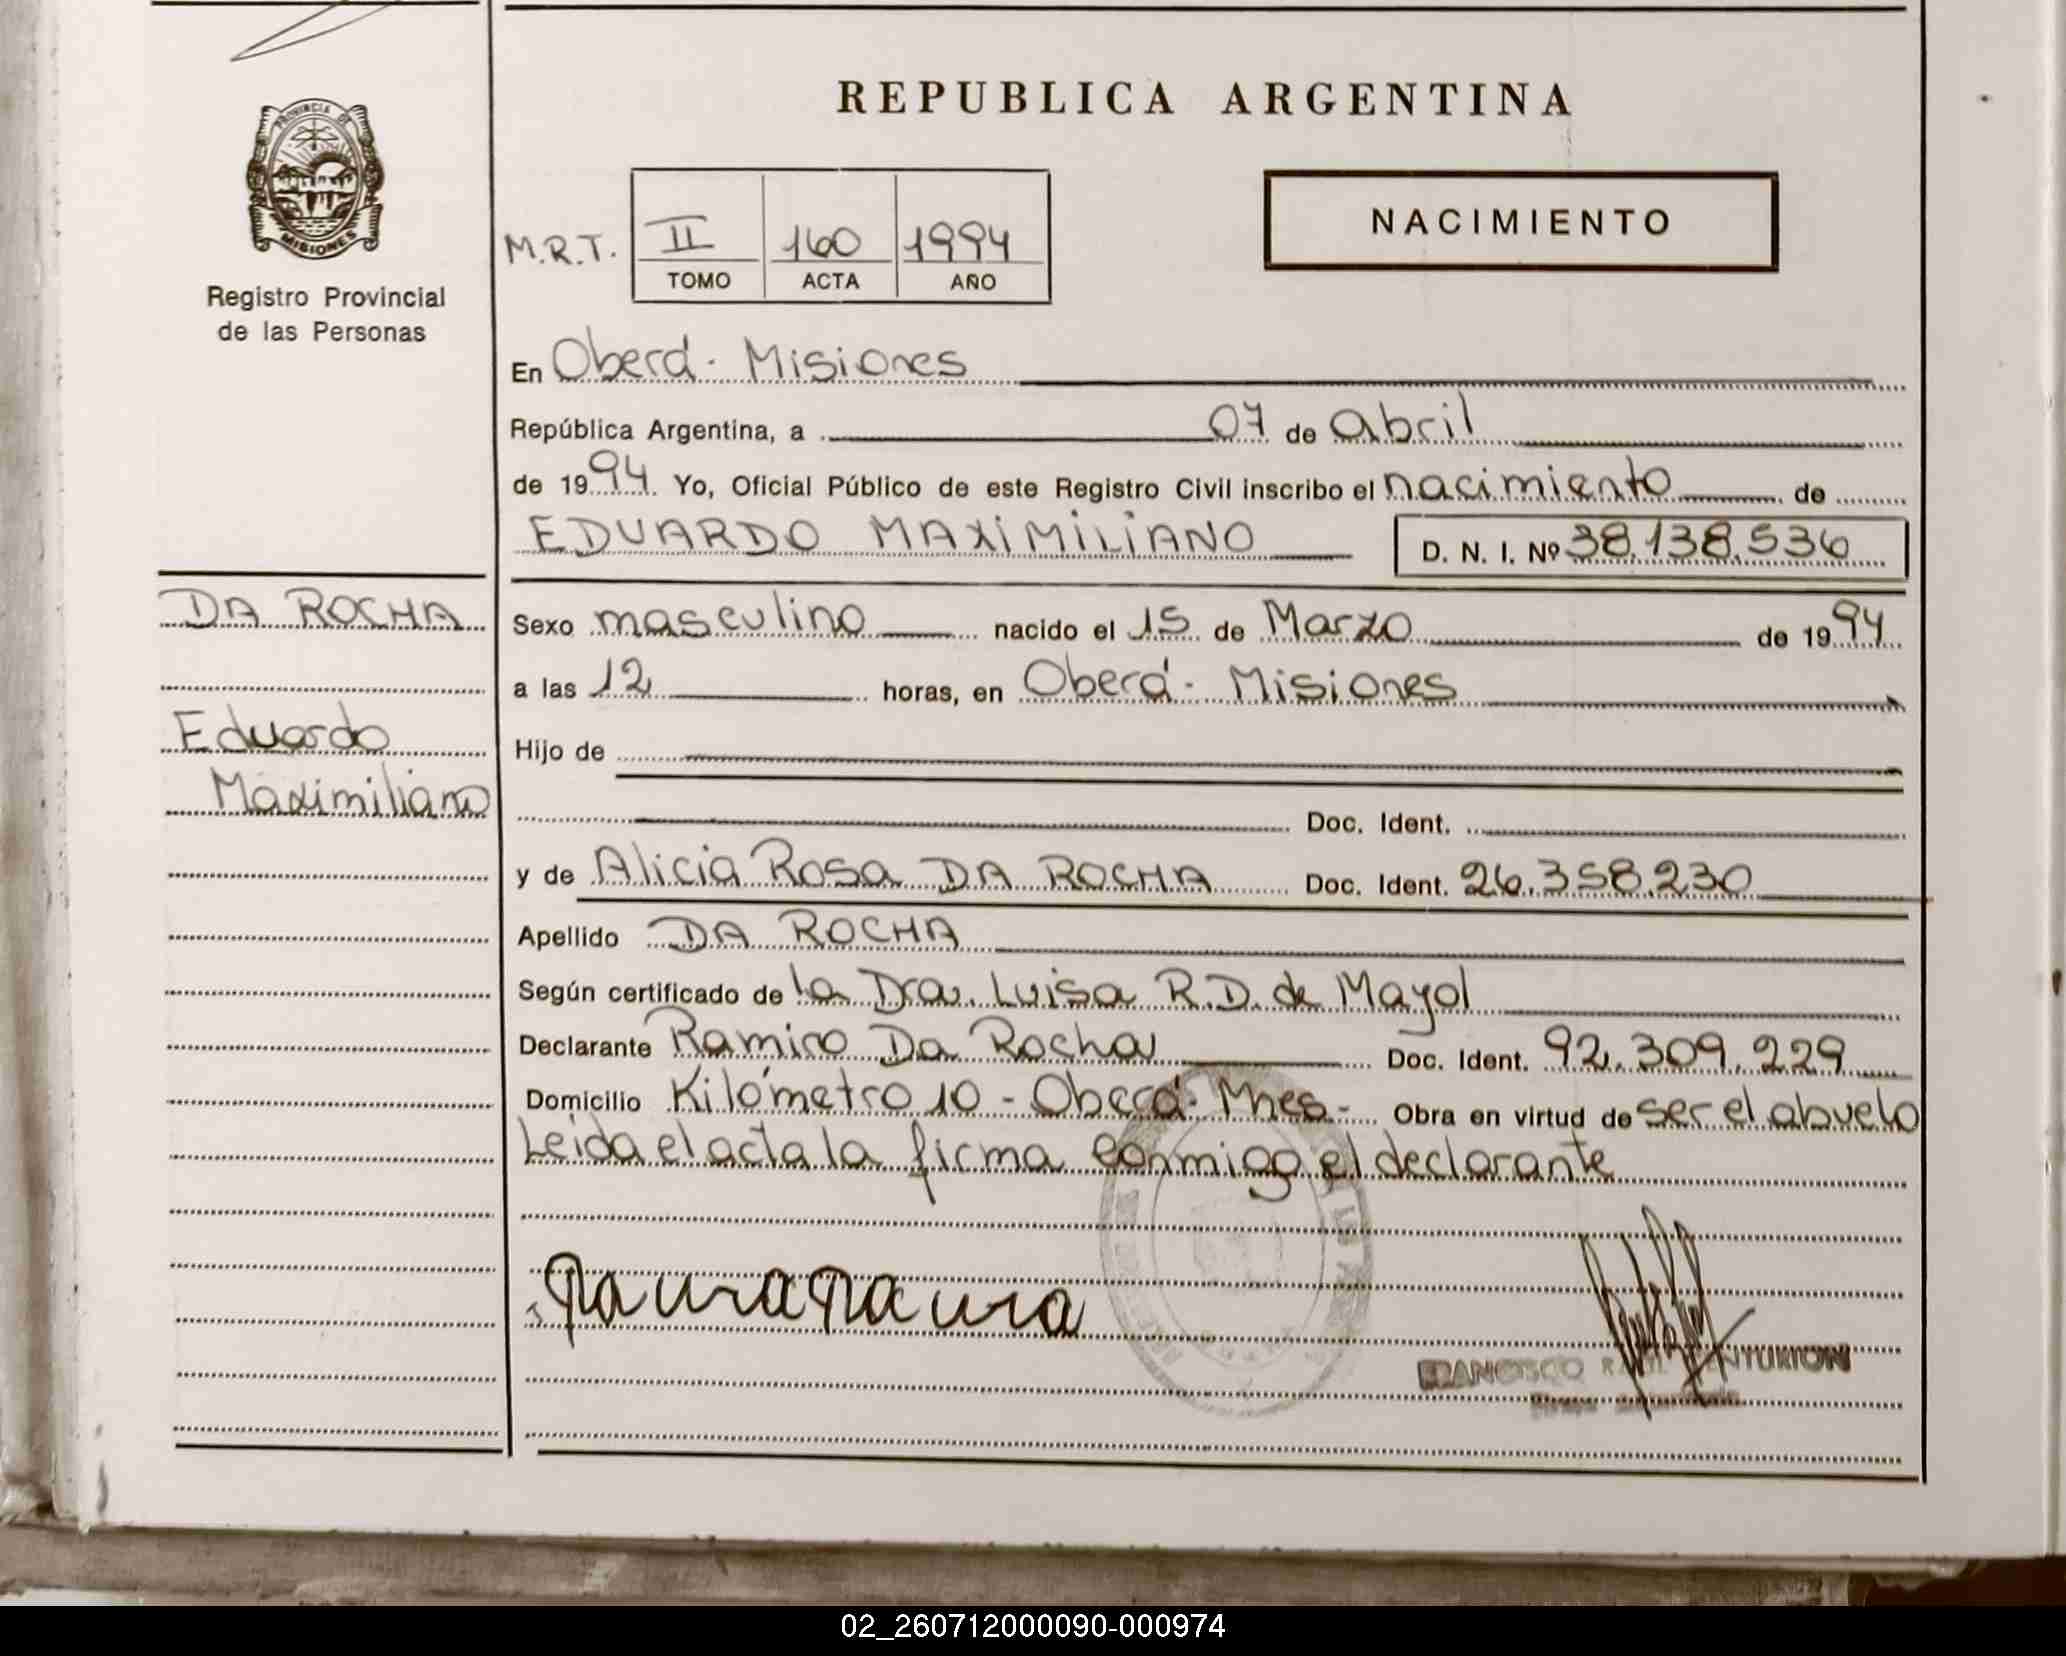 REPUBLICA ARGENTINA
PROVINCIA DE
MISIONES
Registro Provincial
de las Personas
M.R.T. II 160 1994
TOMO ACTA AÑO
NACIMIENTO
En Oberá - Misiones
República Argentina, a 07 de abril
de 1994. Yo, Oficial Público de este Registro Civil inscribo el nacimiento de
EDUARDO MAXIMILIANO D. N. I. Nº 38.138.536
DA ROCHA
Eduardo
Maximiliano
Sexo masculino nacido el 15 de Marzo de 1994
a las 12 horas, en Oberá - Misiones
Hijo de
Doc. Ident.
y de Alicia Rosa DA ROCHA Doc. Ident. 26.358.230
Apellido DA ROCHA
Según certificado de la Dra. Luisa R.D. de Mayol
Declarante Ramiro Da Rocha Doc. Ident. 92.309.229
Domicilio Kilómetro 10 - Oberá - Mnes - Obra en virtud de ser el abuelo
Leida el acta la firma conmigo el declarante
FRANCISCO CENTURION
02_260712000090-000974